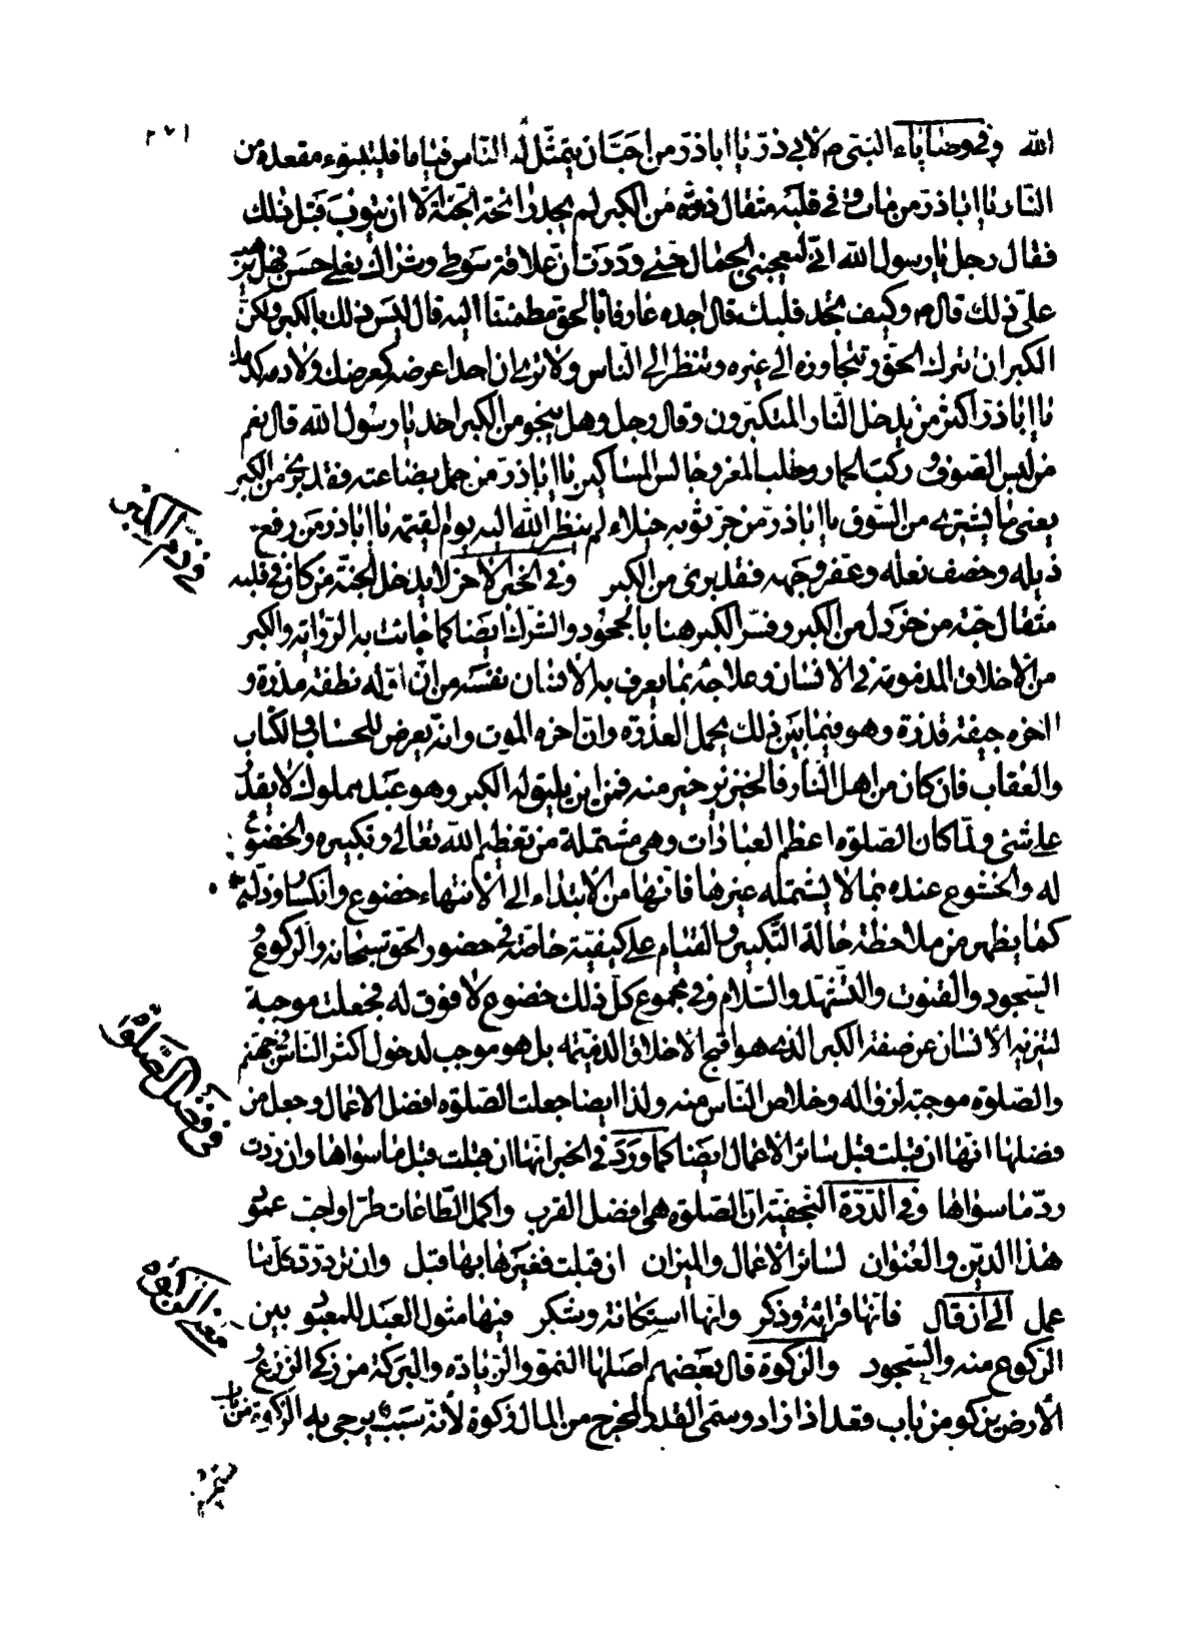 ٢٧١
الله وفي وصاياء النبي م لأبي ذر يا اباذر من احب ان يتمثل له الناس قياما فليتبوء مقعده من
النار يا اباذر من مات وفي قلبه مثقال ذرة من الكبر لم يجد رائحة الجنة الا ان يتوب قبل ذلك
فقال رجل يا رسول الله اني ليعجبني الجمال حتى وددت ان علاقة سوطي وشراك نعلي حسن فهل
على ذلك قال م وكيف تجد قلبك قال اجده عارفا بالحق مطمئنا اليه قال ليس ذلك بالكبر ولكن
الكبر ان تترك الحق وتتجاوزه الى غيره وتنظر الى الناس ولا ترى ان احدا عرضه كعرضك ولا دمه كدمك
يا اباذر اكثر من يدخل النار المتكبرون وقال رجل وهل ينجو من الكبر احد يا رسول الله قال نعم
من لبس الصوف و ركب الحمار وحلب المعز وجالس المساكين يا اباذر من حمل بضاعته فقد برئ من الكبر
يعني ما يشترى من السوق يا اباذر من جر ثوبه خيلاء لم ينظر الله اليه يوم القيمة يا اباذر من رفع
ذيله وخصف نعله وعفر وجهه فقد برئ من الكبر وفي الخبر الاخر لا يدخل الجنة من كان في قلبه
في ذم الكبر
مثقال حبة من خردل من الكبر وفسر الكبر هنا بالجحود والشرك ايضا كما جائت به الرواية والكبر
من الاخلاق المذمومة في الانسان وعلاجه بما يعرف به الانسان نفسه من ان اوله نطفة مذرة و
اخره جيفة قذرة وهو فيما بين ذلك يحمل العذرة وان اخره الموت وانه يعرض للحساب والكتاب
والعقاب فان كان من اهل النار فالخنزير خير منه فمن اين يليق له الكبر وهو عبد مملوك لا يقدر
على شئ ولما كان الصلوة اعظم العبادات وهي مشتملة من تعظيم الله تعالى وتكبيره والخضوع
له والخشوع عنده بما لا يشتمله غيرها فانها من الابتداء الى الانتهاء خضوع وانكسار وذلة
كما يظهر من ملاحظة حالة التكبير والقيام على كيفية خاصة في حضور الحق سبحانه والركوع و
السجود والقنوت والتشهد والسلام وفي مجموع كل ذلك خضوع لا فوق له فجعلت موجبة
لتنزيه الانسان عن صفة الكبر الذي هو اقبح الاخلاق الذميمة بل هو موجب لدخول اكثر الناس في جهنم
في فضل الصلوة
والصلوة موجبة لزواله وخلاص الناس منه ولذا ايضا جعلت الصلوة افضل الاعمال وجعل من
فضلها انها ان قبلت قبل سائر الاعمال ايضا كما ورد في الخبر انها ان قبلت قبل ما سواها وان ردت
رد ما سواها وفي الدرة النجفية ان الصلوة هي افضل القرب واكمل الطاعات طرا واجب عمود
هذا الدين والعنوان لسائر الاعمال والميزان ان قبلت فغيرها بها قبل وان ترد رد كل ما
عمل الى ان قال فانها قرائة وذكر وانها استكانة وشكر فيها مثول العبد للمعبود بين
معنى الزكوة
الركوع منه والسجود والزكوة قال بعضهم اصلها النمو والزيادة والبركة من زكى الزرع و
الأرض يزكو من باب قعد اذا زاد وسمى القدر المخرج من المال زكوة لأنه سبب يرجى به الزكوة من باب